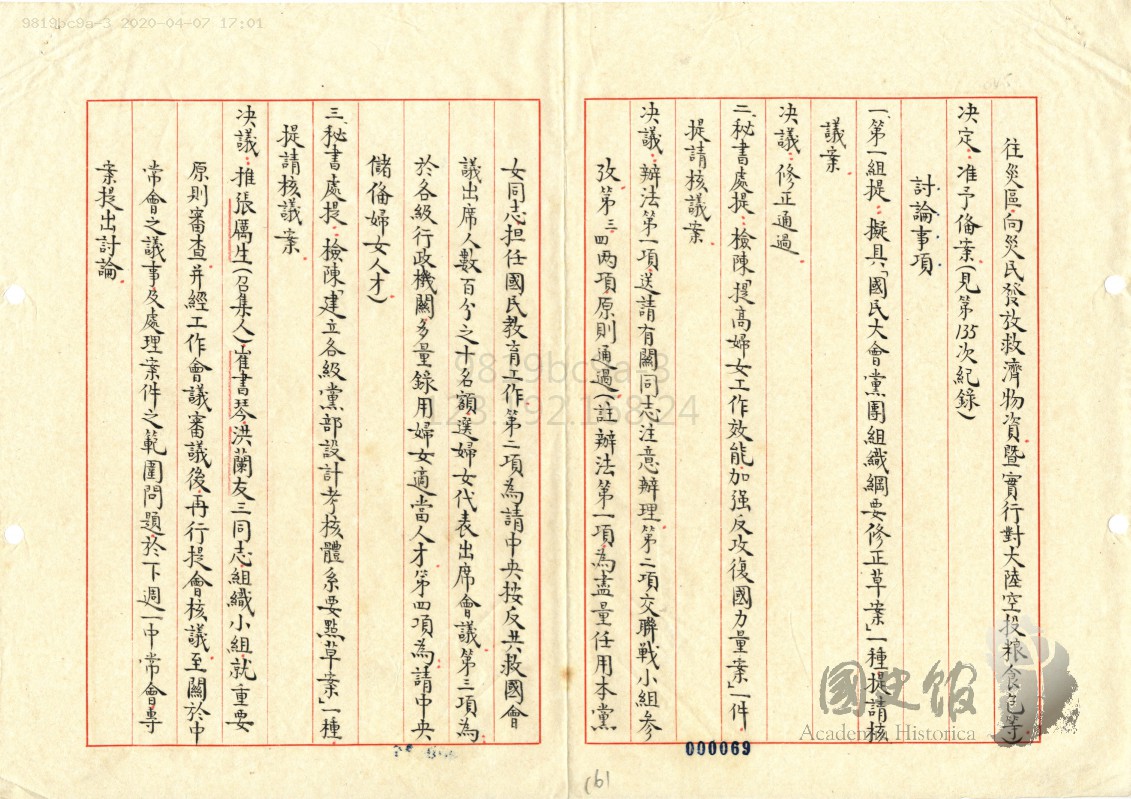 9819bc9a-3 2020-04-07 17:01
往災區向災民發放救濟物資暨實行對大陸空投粮食包等
决定：准予俻案（見第135次紀錄）
討論事項
一、第一組提：擬具「國民大會黨團組織綱要修正草案」一種提請核
議案
决議：修正通過
二、秘書處提：檢陳提高婦女工作效能加强反攻復國力量案」一件
提請核議案
决議：辦法第一項送請有關同志注意辦理第二項交聯戰小組参
攷第三四兩項原則通過（註辦法第一項為盡量任用本黨
女同志担任國民教育工作第二項為請中央按反共救國會
議出席人數百分之十名額選婦女代表出席會議第三項為
於各級行政機關多量錄用婦女適當人才第四項為請中央
儲俻婦女人才）
三、秘書處提：檢陳「建立各級黨部設計考核體系要點草案」一種
提請核議案
决議：推張厲生（召集人）崔書琴洪蘭友三同志組織小組就重要
原則審查并經工作會議審議後再行提會核議至關於中
常會之議事及處理案件之範圍問題於下週一中常會專
案提出討論
9819bc9a-3
123.192.168.24
國史館
Academia Historica
000069
161